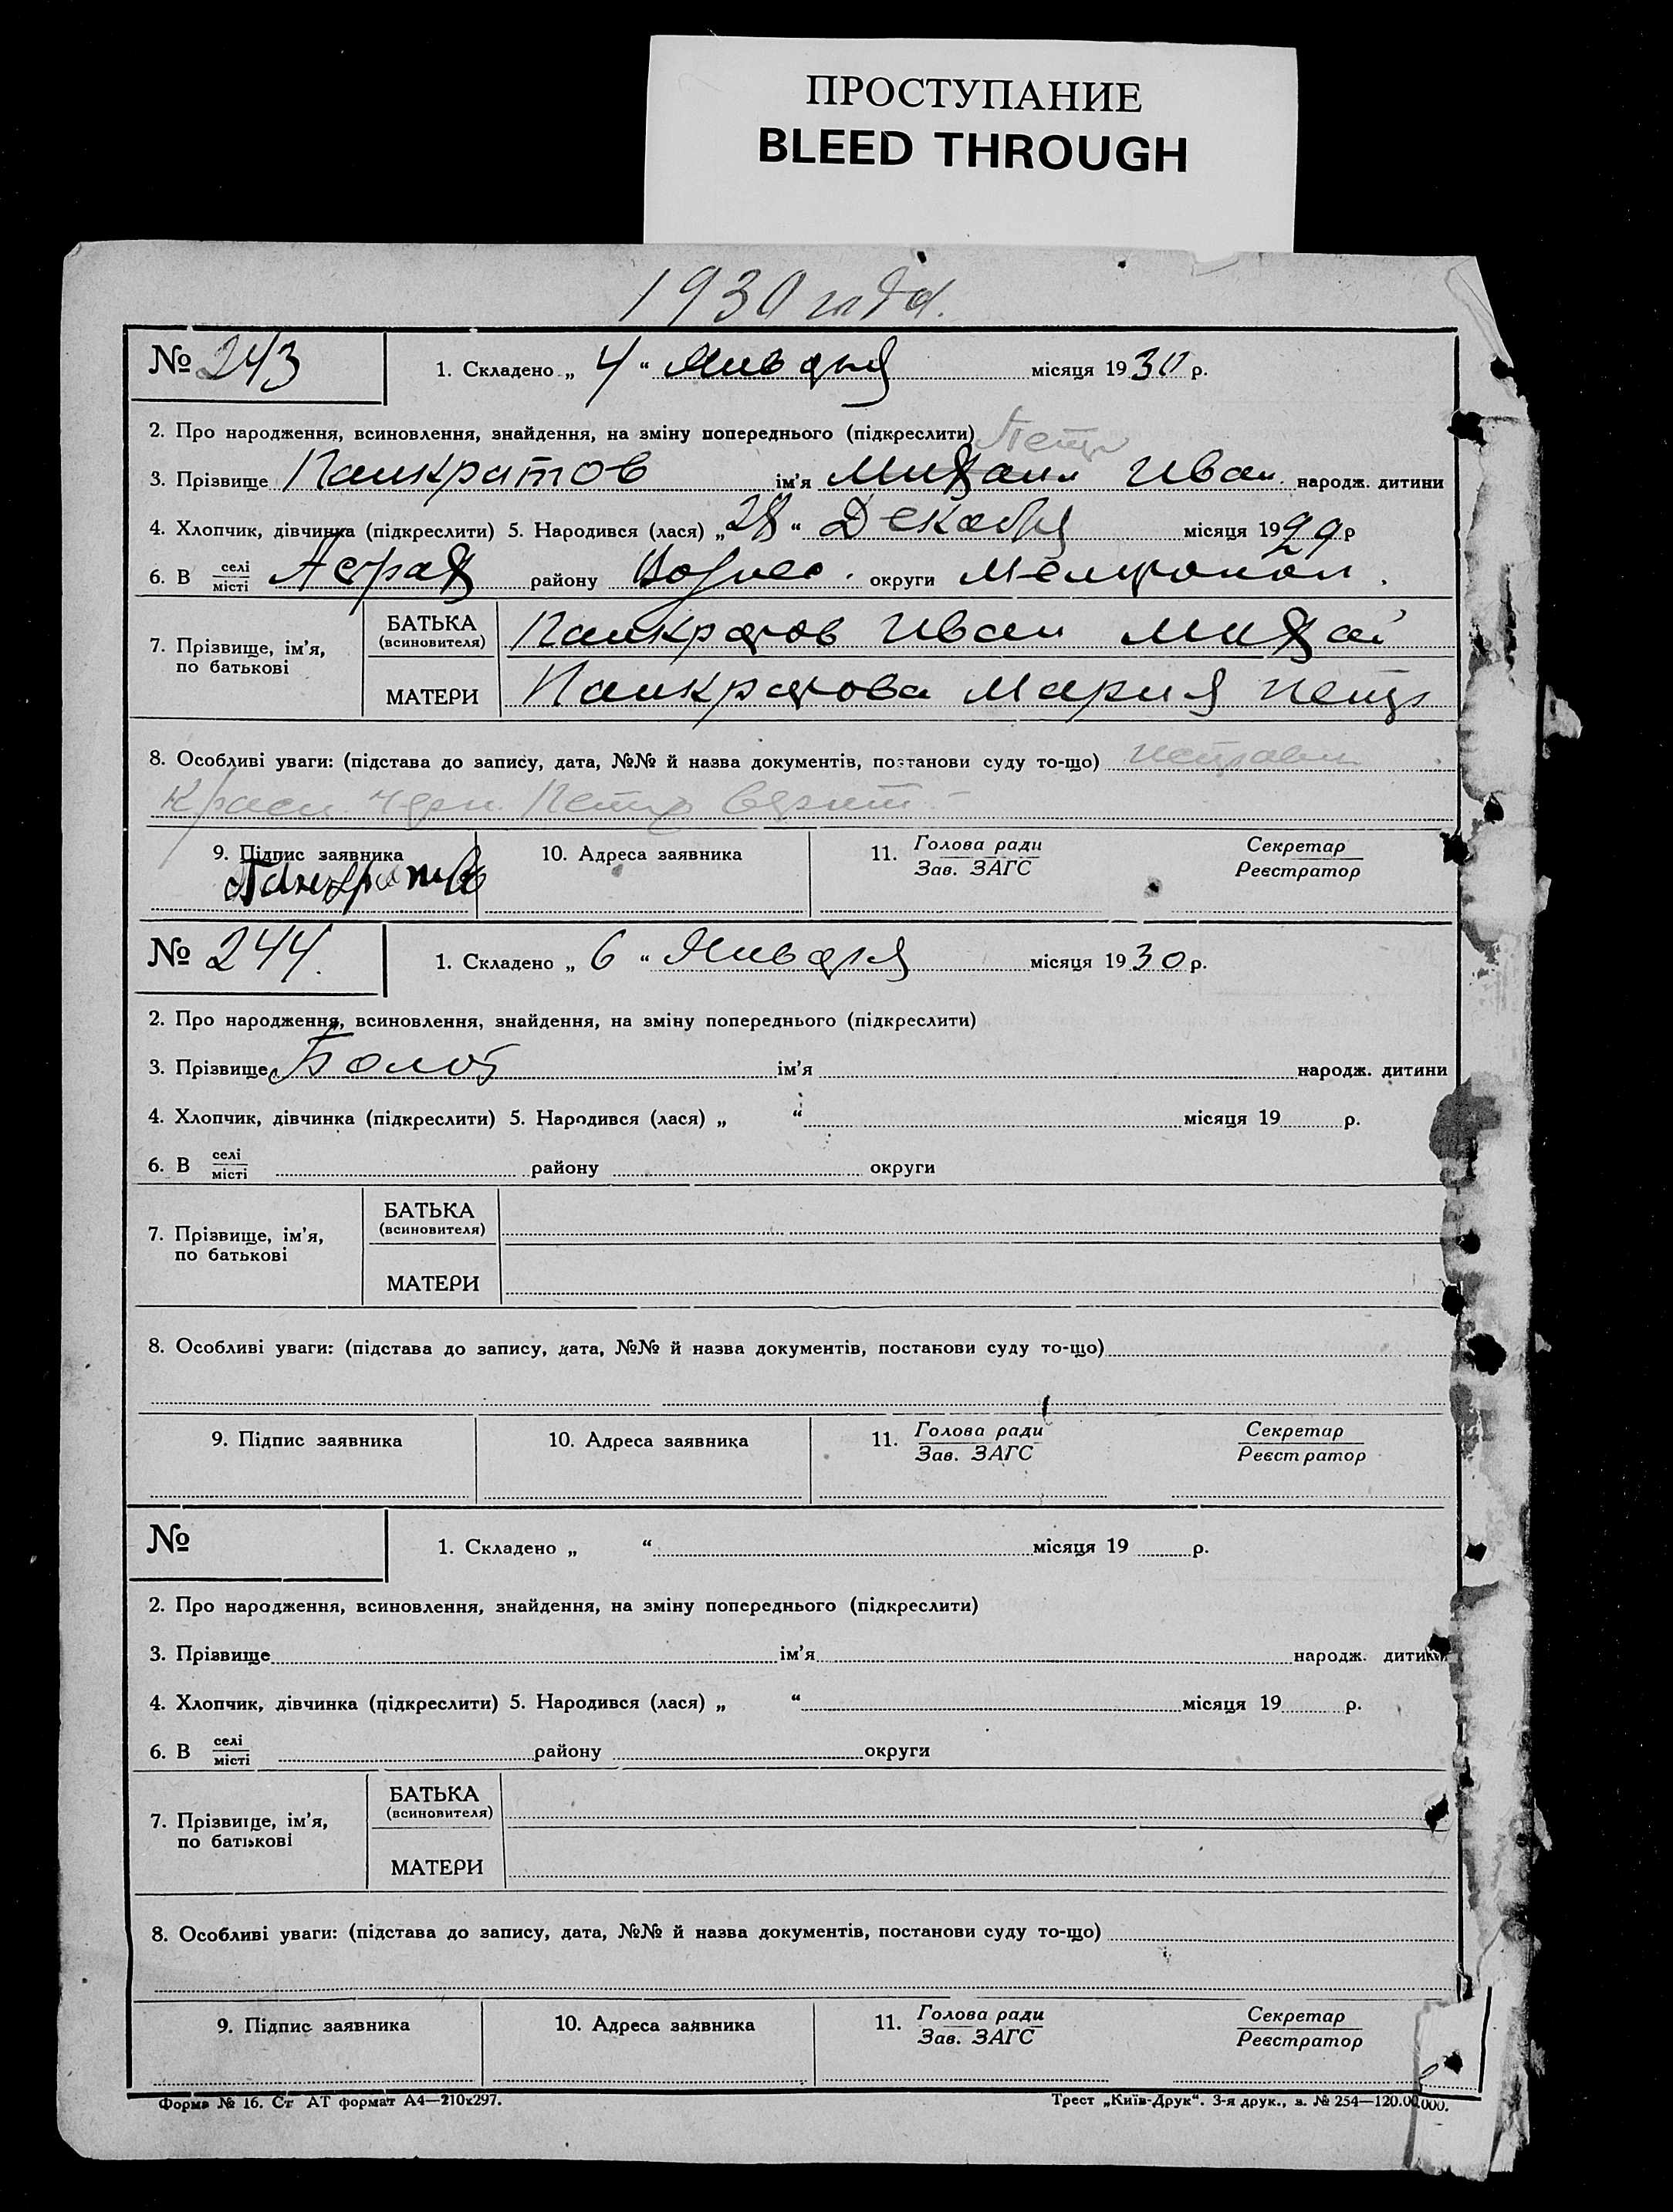 ПРОСТУПАНИЕ
BLEED THROUGH
1930 года.
№ 243 1. Складено „ 4 “ Января місяця 1930 р.
2. Про народження, всиновлення, знайдення, на зміну попереднього (підкреслити) Петр
3. Прізвище Панкратов ім'я Михаил Иван. народж. дитини
4. Хлопчик, дівчинка (підкреслити) 5. Народився (лася) „ 28 “ Декабря місяця 1929 р
6. В селі/місті Астрах району Вознес. округи Мелитопол.
7. Прізвище, ім'я, по батькові
БАТЬКА (всиновителя) Панкратов Иван Михай
МАТЕРИ Панкратова Мария Петр
8. Особливі уваги: (підстава до запису, дата, №№ й назва документів, постанови суду то-що)
Петр
9. Підпис заявника 10. Адреса заявника 11. Голова ради/Зав. ЗАГС Секретар/Реєстратор
Панкратов
№ 244. 1. Складено „ 6 “ Января місяця 1930 р.
2. Про народження, всиновлення, знайдення, на зміну попереднього (підкреслити)
3. Прізвище ім'я народж. дитини
4. Хлопчик, дівчинка (підкреслити) 5. Народився (лася) „ “ місяця 19 р.
6. В селі/місті району округи
7. Прізвище, ім'я, по батькові
БАТЬКА (всиновителя)
МАТЕРИ
8. Особливі уваги: (підстава до запису, дата, №№ й назва документів, постанови суду то-що)
9. Підпис заявника 10. Адреса заявника 11. Голова ради/Зав. ЗАГС Секретар/Реєстратор
№ 1. Складено „ “ місяця 19 р.
2. Про народження, всиновлення, знайдення, на зміну попереднього (підкреслити)
3. Прізвище ім'я народж. дитини
4. Хлопчик, дівчинка (підкреслити) 5. Народився (лася) „ “ місяця 19 р.
6. В селі/місті району округи
7. Прізвище, ім'я, по батькові
БАТЬКА (всиновителя)
МАТЕРИ
8. Особливі уваги: (підстава до запису, дата, №№ й назва документів, постанови суду то-що)
9. Підпис заявника 10. Адреса заявника 11. Голова ради/Зав. ЗАГС Секретар/Реєстратор
Форма № 16. Ст АТ формат А4—210х297. Трест „Київ-Друк“. 3-я друк., з. № 254—120.00.000.